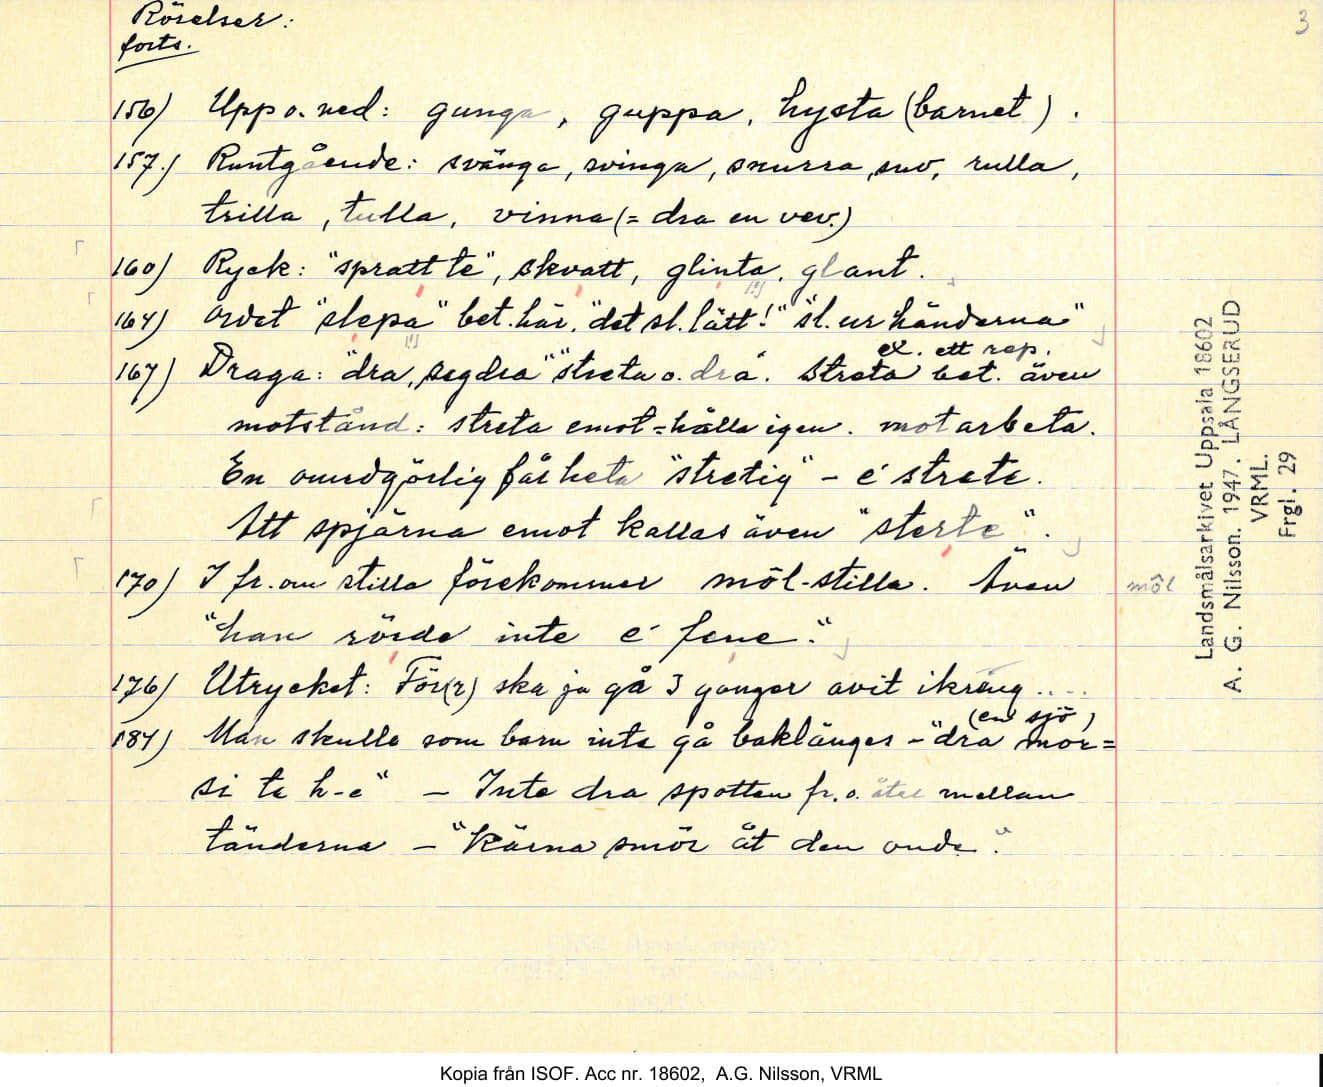 Rörelser:
forts.
3
156) Upp o. ned: gunga, guppa, hysta (barnet).
157.) Runtgående: svänga, svinga, snurra, sno, rulla,
trilla, tulla, vinna (= dra en vev.)
160) Ryck: "spratt te", skvatt, glinta, glant.
164) Ordet "slepa" bet. här. "det sl. lätt!" "sl. ur händerna"
ex. ett rep.
167) Draga: "dra, segdra" "streta o. dra". Streta bet. även
motstånd: streta emot = hålla igen. motarbeta.
En omedgörlig får heta "stretig" – e' strete.
Att spjärna emot kallas även "sterte".
170) I fr. om stilla förekommer möl-stilla. Även
möl
"han rörde inte e' fene."
176) Utrycket: För(r) ska ja gå 3 gånger avit ikring ....
(en sjö)
184) Man skulle som barn inte gå baklänges – "dra mor=
si te h-e" – Inte dra spotten fr. o. åter mellan
tänderna – "Kärna smör åt den onde."
Landsmålsarkivet Uppsala 18602
A. G. Nilsson. 1947. LÅNGSERUD
VRML.
Frgl. 29
Kopia från ISOF. Acc nr. 18602, A.G. Nilsson, VRML